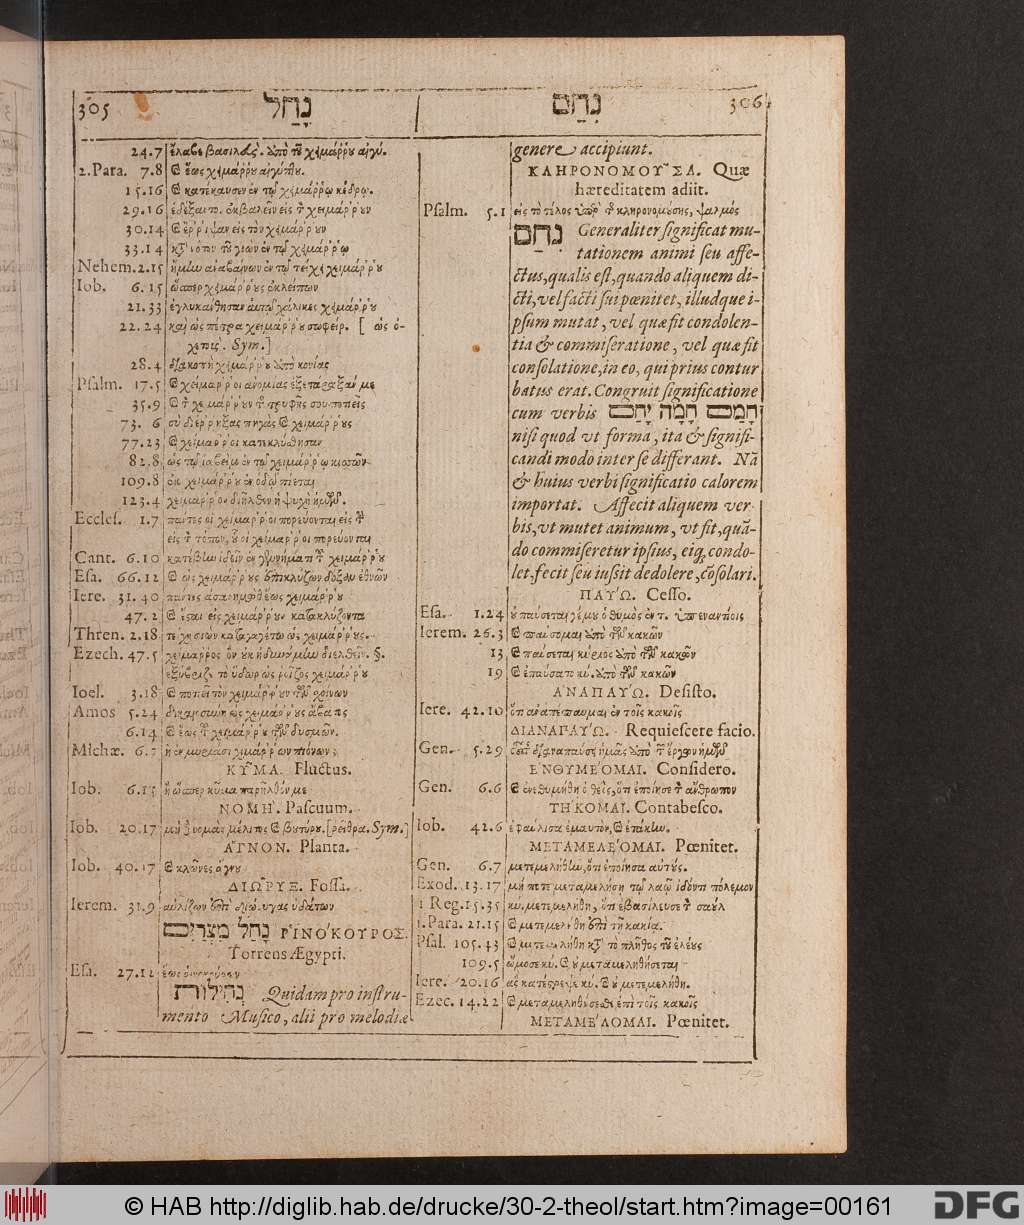 305 נָחַל
24.7 ἔλαβε βασιλεὺς. ἀπὸ τοῦ χειμάῤῥου αἰγύ.
2. Para. 7.8 ἕως χειμάῤῥου αἰγύπτου.
15.16 κατέκαυσεν ἐν τῷ χειμάῤῥῳ κέδρῳ.
29.16 ἐκβαλεῖν εἰς τὸν χειμάῤῥουν
30.14 ἔῤῥιψαν εἰς τὸν χειμάῤῥουν
33.14 ἐν τῷ χειμάῤῥῳ
Nehem. 2.15 ἤμην ἀναβαίνων ἐν τῷ τείχει χειμάῤῥου
Iob. 6.15 ὥσπερ χειμάῤῥους ἐκλείπων
21.33 ἐγλυκάνθησαν αὐτῷ χάλικες χειμάῤῥου
22.24 καὶ ὡς πέτρα χειμάῤῥου σωφείρ. [ ὡς ὀ-
Sym.]
28.4 διακοπὴ χειμάῤῥου ἀπὸ κονίας
Psalm. 17.5 χείμαῤῥοι ἀνομίας ἐξετάραξάν με
35.9 χειμάῤῥουν τῆς τρυφῆς σου ποτιεῖς
73. 6 σὺ διέῤῥηξας πηγὰς χειμάῤῥους
77.23 χείμαῤῥοι κατεκλύσθησαν
82.8 ὡς τῷ ἰαβεὶμ ἐν τῷ χειμάῤῥῳ κισσῶν
109.8 ἐκ χειμάῤῥου ἐν ὁδῷ πίεται
123.4 χείμαῤῥον διῆλθεν ἡ ψυχὴ ἡμῶν.
Eccles. 1.7 πάντες οἱ χείμαῤῥοι πορεύονται εἰς τὴν
εἰς τὸν τόπον, οὗ οἱ χείμαῤῥοι πορεύονται
Cant. 6.10 κατέβην ἰδεῖν ἐν γεννήματι τοῦ χειμάῤῥου
Esa. 66.12 ὡς χειμάῤῥους ἐπικλύζων δόξαν ἐθνῶν
Iere. 31.40 πάντες ἀσαρημὼθ ἕως χειμάῤῥου
47.2 ἔσται εἰς χειμάῤῥουν κατακλύζοντα
Thren. 2.18 τείχη σιὼν καταγαγέτω ὡς χειμάῤῥους.
Ezech. 47.5 χείμαῤῥος ὃν οὐκ ἠδυνάμην διελθεῖν. §.
ἐξύβριζε τὸ ὕδωρ ὡς ῥοῖζος χειμάῤῥου
Ioel. 3.18 ποτιεῖ τὸν χειμάῤῥουν τῶν χοίνων
Amos 5.24 δικαιοσύνη ὡς χειμάῤῥους ἄβατος
6.14 ἕως τοῦ χειμάῤῥου τῶν δυσμῶν.
Michæ. 6.7 ἢ ἐν μυριάσι χιμάῤῥων πιόνων;
ΚΥ͂ΜΑ. Fluctus.
Iob. 6.15 ἢ ὥσπερ κῦμα παρῆλθόν με
ΝΟΜΗ'. Pascuum.
Iob. 20.17 νομὰς μέλιτος βουτύρου.[ῥεῖθρα. Sym.]
ἌΓΝΟΝ. Planta.
Iob. 40.17 κλῶνες ἄγνου
ΔΙΩ͂ΡΥΞ. Fossa.
Ierem. 31.9 αὐλίζων ἐπὶ διώρυγας ὑδάτων
נָחַל מִצְרַיִם ΡΊΝΟΚΟΥΡΟΣ.
Torrens Ægypti.
Esa. 27.12 ἕως
נְחִילוֹת Quidam pro instru-
mento Musico, alii pro melodiæ
נִחַם 306
genere accipiunt.
ΚΛΗΡΟΝΟΜΟΥ͂ΣΑ. Quæ
hæreditatem adiit.
Psalm. 5.1 εἰς τὸ τέλος ὑπὲρ τῆς κληρονομούσης, ψαλμός
נִחַם Generaliter significat mu-
tationem animi seu affe-
ctus, qualis est, quando aliquem di-
cti, vel facti sui pœnitet, illudque i-
psum mutat, vel quæ fit condolen-
tia & commiseratione, vel quæ fit
consolatione, in eo, qui prius contur
batus erat. Congruit significatione
cum verbis חָמַם חָמָה יָחַם
nisi quod vt forma, ita & signifi-
candi modo inter se differant. Nã
& huius verbi significatio calorem
importat. Affecit aliquem ver-
bis, vt mutet animum, vt sit, quã-
do commiseretur ipsius, eiq́; condo-
let, fecit seu iussit dedolere, cõsolari.
ΠΑΥΩ. Cesso.
Esa. 1.24 οὐ παύσεται ὁ θυμὸς ἐν τ. ὑπεναντίοις
Ierem. 26.3 παύσομαι ἀπὸ τῶν κακῶν
13 παύσεται κύριος ἀπὸ τῶν κακῶν
19 ἐπαύσατο κύ. ἀπὸ τῶν κακῶν
ἈΝΑΠΑΥΩ. Desisto.
Iere. 42.10 ὅτι ἀναπέπαυμαι ἐν τοῖς κακοῖς
ΔΙΑΝΑΠΑΥΩ. Requiescere facio.
Gen. 5.29 διαναπαύσει ἡμᾶς ἀπὸ τῶν ἔργων ἡμῶν
ἘΝΘΥΜΕΌΜΑΙ. Considero.
Gen. 6.6 ἐνεθυμήθη ὁ θεὸς, ὅτι ἐποίησε τὸν ἄνθρωπον
ΤΗ'ΚΟΜΑΙ. Contabesco.
Iob. 42.6 ἐφαύλισα ἐμαυτὸν, ἐτάκην.
ΜΕΤΑΜΕΛΕΌΜΑΙ. Pœnitet.
Gen. 6.7 μετεμελήθην, ὅτι ἐποίησα αὐτούς.
Exod. 13.17 μή ποτε μεταμελήσῃ τῷ λαῷ ἰδόντι πόλεμον
1 Reg. 15.35 κύ. μετεμελήθη, ὅτι ἐβασίλευσε τὸν σαοὺλ
1. Para. 21.15 μετεμελήθη ἐπὶ τῇ κακίᾳ.
Psal. 105.43 μετεμελήθη κατὰ τὸ πλῆθος τοῦ ἐλέους
109.5 ὤμοσε κύ. οὐ μεταμεληθήσεται
Iere. 20.16 ἃς κατέστρεψε κύ. οὐ μετεμελήθη.
Ezec. 14.22 μεταμεληθήσεσθε ἐπὶ τοῖς κακοῖς
ΜΕΤΑΜΕ'ΛΟΜΑΙ. Pœnitet.
© HAB http://diglib.hab.de/drucke/30-2-theol/start.htm?image=00161
DFG